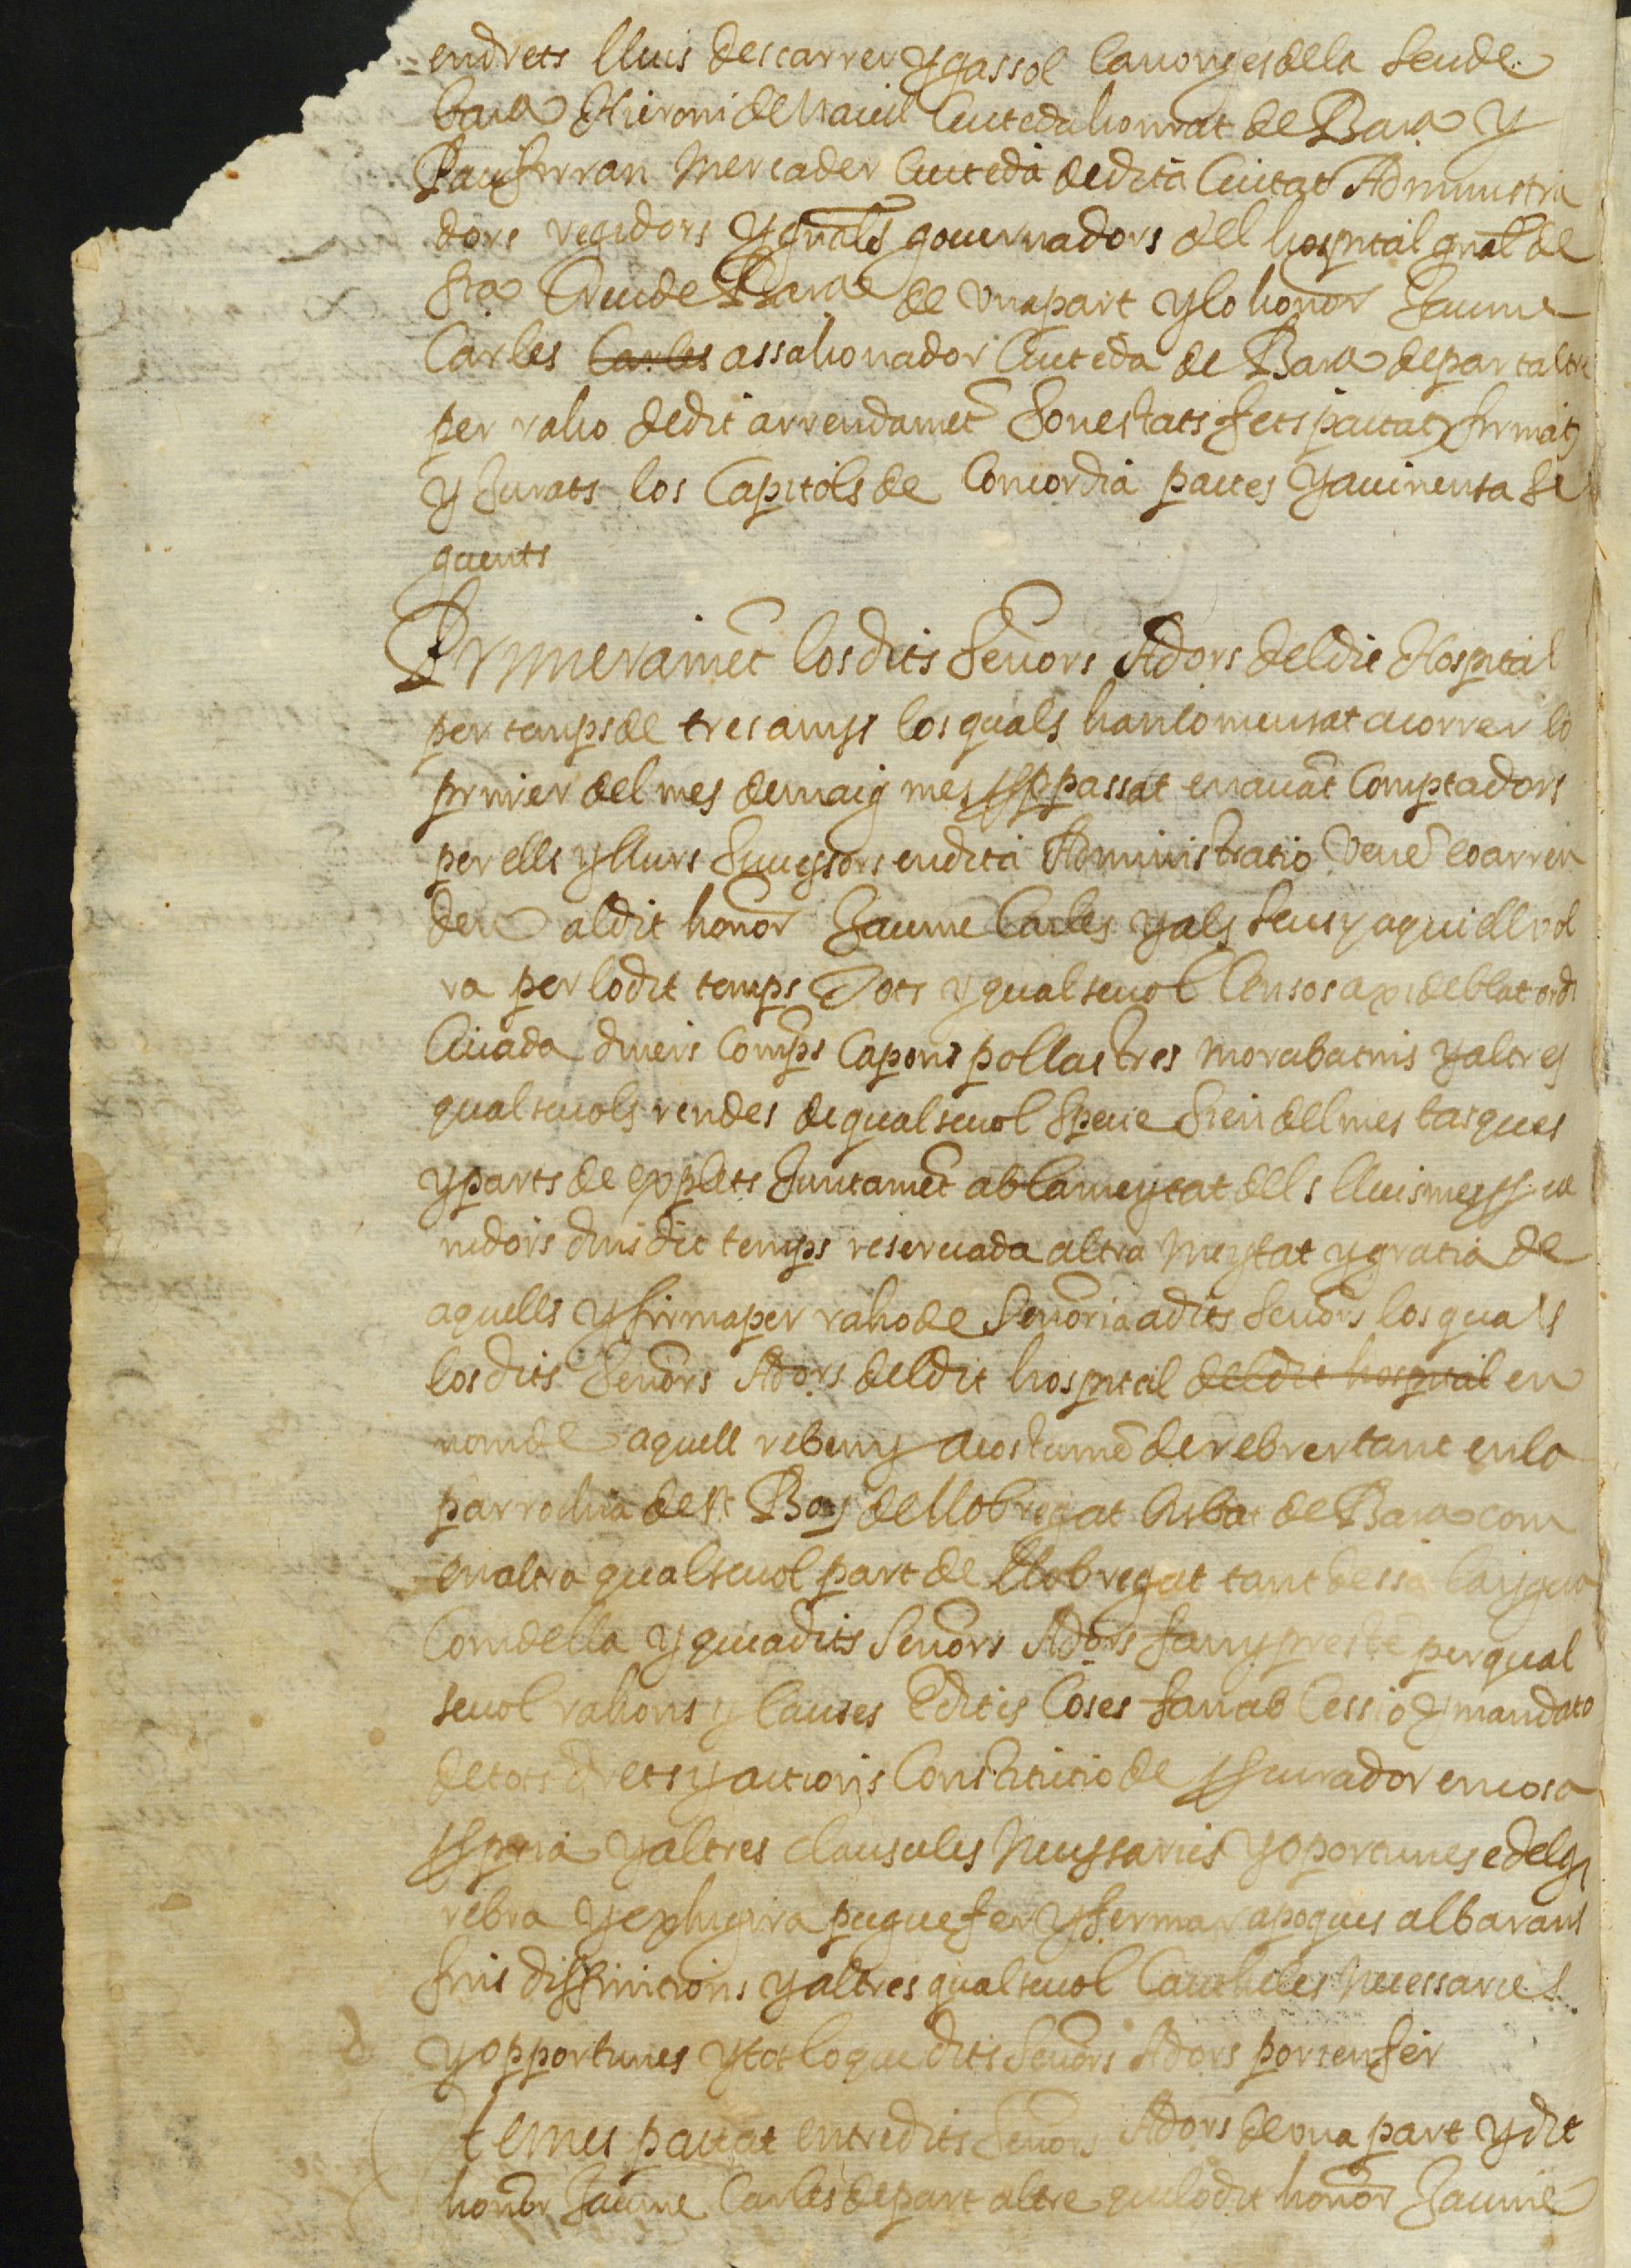 endrets lluis descarrer y gassol Canonges dela Seu de
Bara Hieroni de Nauel Ciuteda honrat de Bara y
Pau ferran Mercader Ciuteda de dita Ciutat Administra
dors regidors y gnals gouernadors del hospital gnal de
Sta Creu de Bara de vna part y lo honor Jaume
Carles Carles assahonador Ciuteda de Bara de part altre
per raho de dit arrendamet son estats fets pactats firmats
y Jurats los Capitols de Concordia pactes y auinensa se
guents
Primeramet los dits Senors Adors del dit Hospital
per temps de tres anys los quals han comensat a correr lo
primer del mes de maig mes prop passat en auat Comptadors
per ells y llurs Successors en dita Administratio Vene e o arren
den al dit honor Jaume Carles y als seus y a qui ell vol
ra per lo dit temps Tots y qualseuol Censos axi de blat ordi
Ciuada diners Comps Capons pollastres morabatins y altres
qualseuols rendes de qualseuol Specie Sien delmes tasques
y parts de explets Juntamet ab la meytat dells lluismes
nidors dins dit temps reseruada altra Meytat y gratia de
aquells y firma per raho de Senoria a dits Senors los quals
los dits Senors Adors del dit hospital del dit hospital en
nom de aquell reben y acostume de rebrer tant en la
parrochia de St Boy de llobregat bisbat de Bara com
en altra qualseuol part de llobregat tant dessa laygua
Com della y qui a dits Senors Adors fan y preste per qual
seuol rahons y Causes E dites Coses fan ab Cessio y mandato
de tots drets y actions Constitutio de procurador en cosa
propria y altres clausules Necessaries y oportunes e del q
rebra y exhigira pugue fer y fermar apoques albarans
fins diffinitions y altres qualseuol Cautheles necessaries
y opportunes y tot lo que dits Senors Adors porien fer
Item es pactat entre dits Senors Adors de vna part y dit
honor Jaume Carles de part altre que lo dit honor Jaume